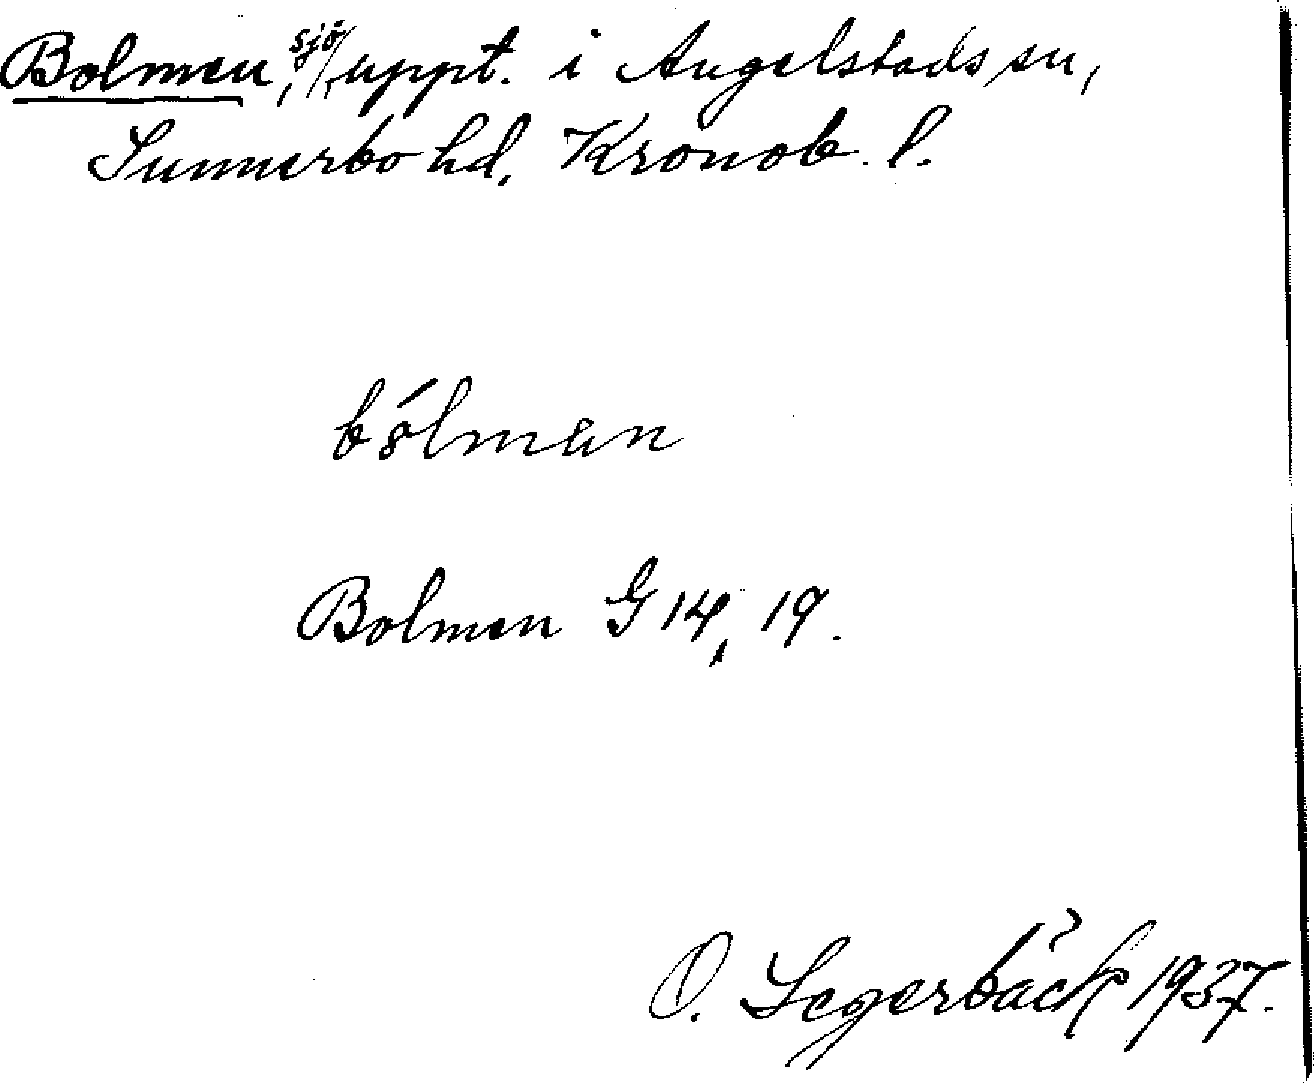 Bolmen, sjö, uppt. i Angelstads sn,
Sunnerbo hd, Kronob. l.
bólman
Bolmen G 14, 19.
O. Segerbäck 1937.